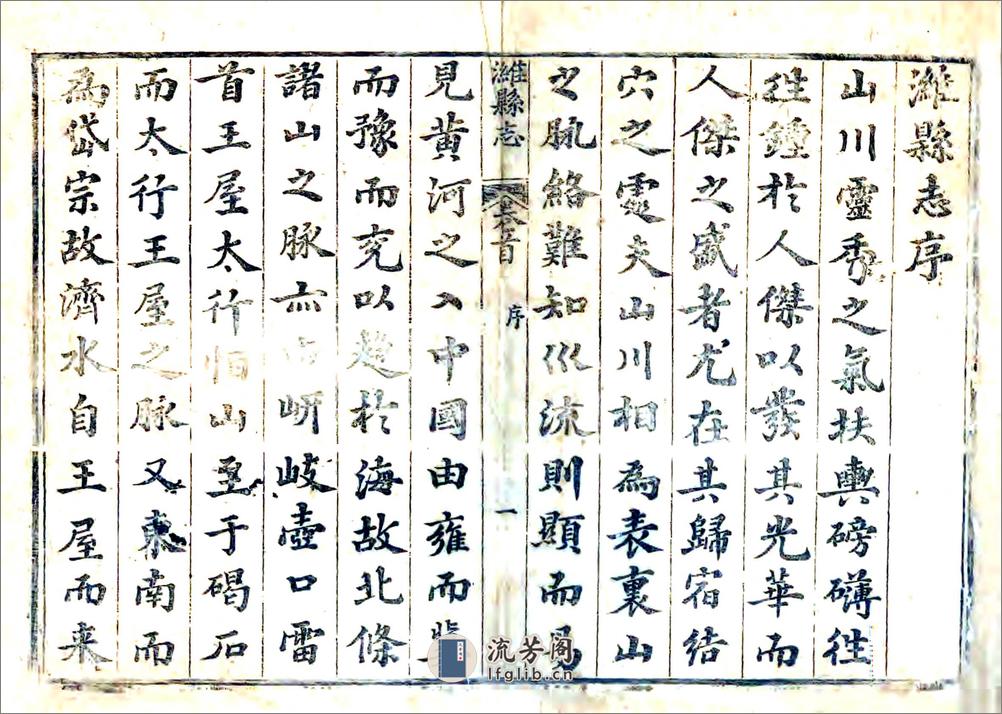 濰縣志序
山川靈秀之氣扶輿磅礴往
往鍾於人傑以發其光華而
人傑之盛者尤在其歸宿結
穴之靈夫山川相為表裏山
之脉絡難知巛流則顯而易
濰縣志 卷首 序 一
見黃河之入中國由雍而冀
而豫而兖以趨於海故北條
諸山之脉亦由岍岐壺口雷
首王屋太行恒山至于碣石
而太行王屋之脉又東南而
為岱宗故濟水自王屋而来
流芳阁
lfglib.cn